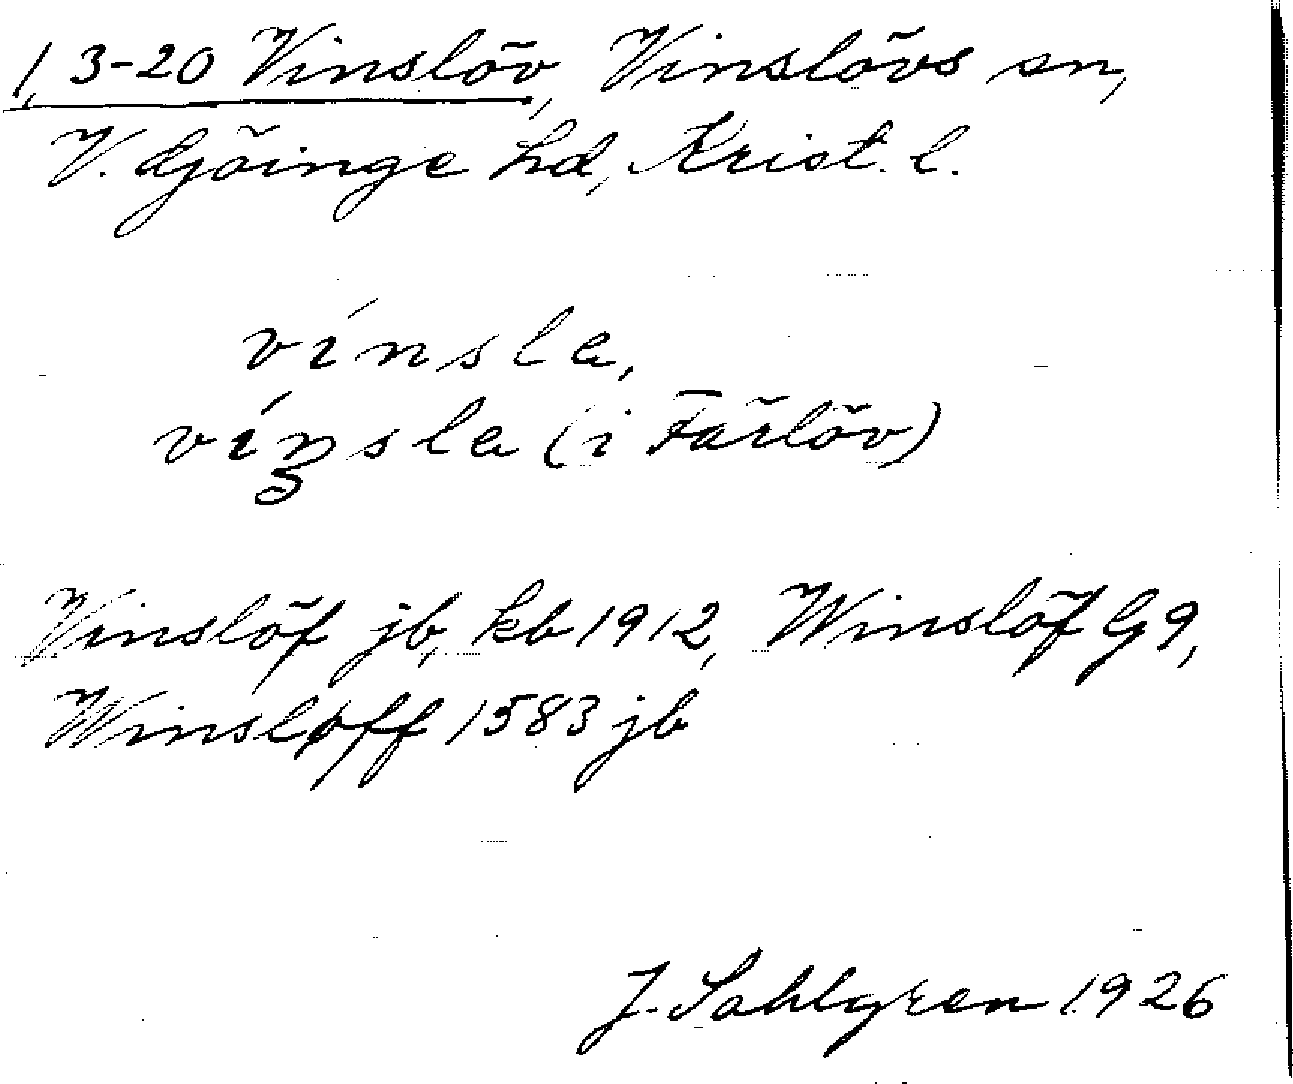 1, 3-20 Vinslöv, Vinslövs sn,
V. Göinge hd, Krist. l.
vínsla,
vínsla (i Färlöv)
Vinslöf jb, kb 1912, Winslöf G9,
Winsløff 1583 jb
J. Sahlgren 1926